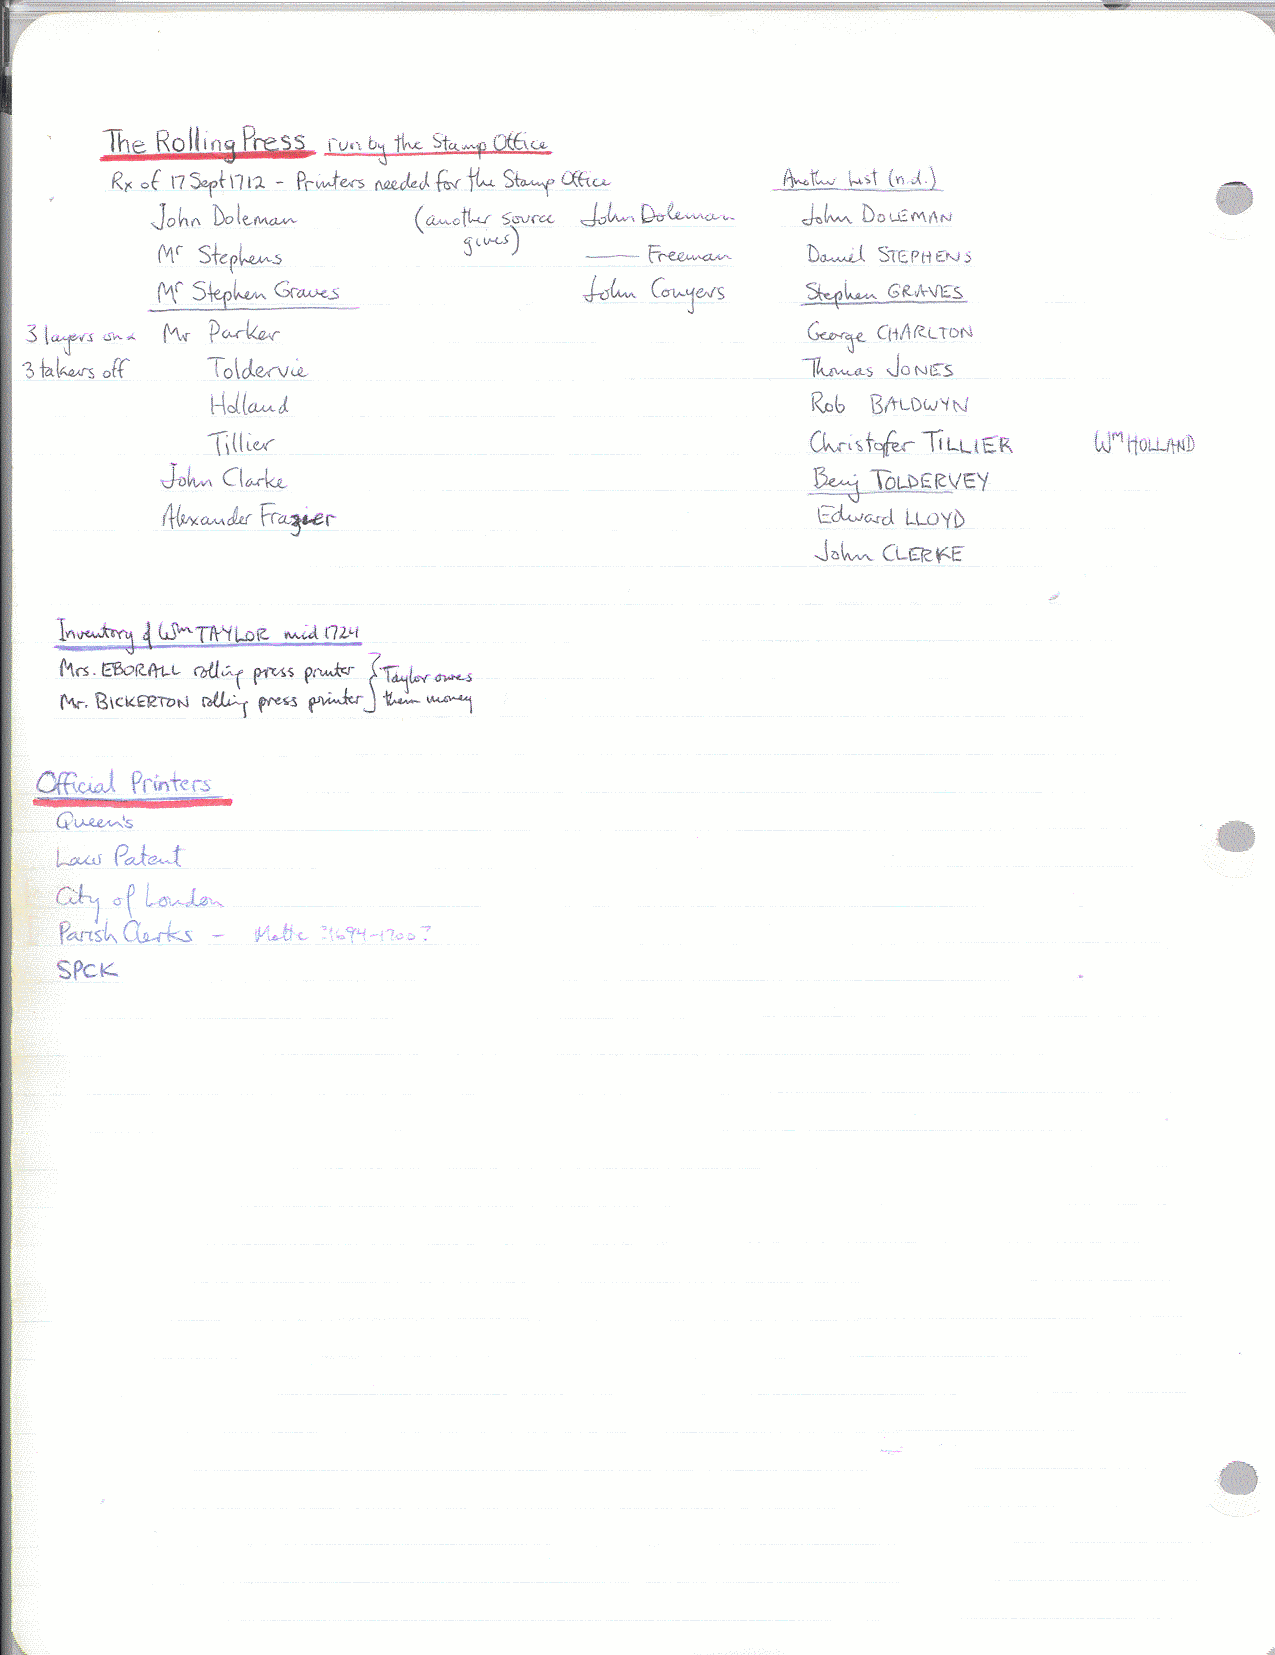 The Rolling Press run by the Stamp Office
Rx of 17 Sept 1712 - Printers needed for the Stamp Office
John Doleman
Mr Stephens
Mr Stephen Graves
3 layers on &
3 takers off
Mr Parker
Toldervie
Holland
Tillier
John Clarke
Alexander Frazier
(another source gives)
John Doleman
—— Freeman
John Conyers
Another List (n.d.)
John DOLEMAN
Daniel STEPHENS
Stephen GRAVES
George CHARLTON
Thomas JONES
Rob BALDWYN
Christofer TILLIER Wm HOLLAND
Benj TOLDERVEY
Edward LLOYD
John CLERKE
Inventory of Wm TAYLOR mid 1724
Mrs. EBORALL rolling press printer } Taylor owes
Mr. BICKERTON rolling press printer } them money
Official Printers
Queen's
Law Patent
City of London
Parish Clerks - Motte ?1694-1700?
SPCK